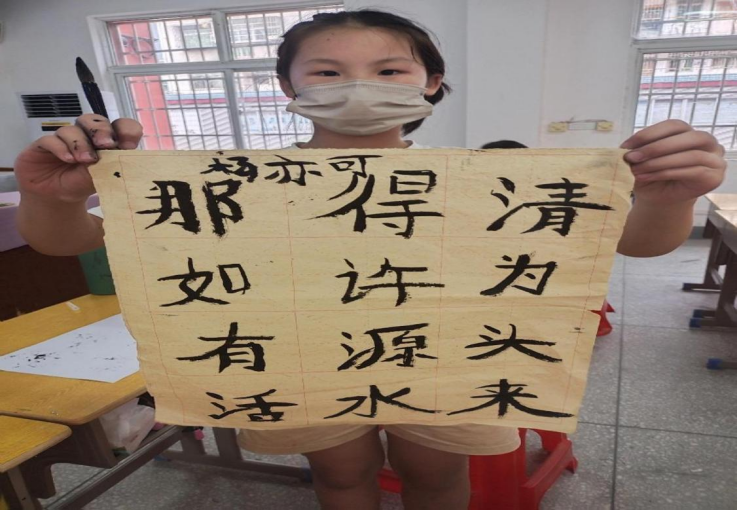 杨亦可
那得清
如许为
有源头
活水来